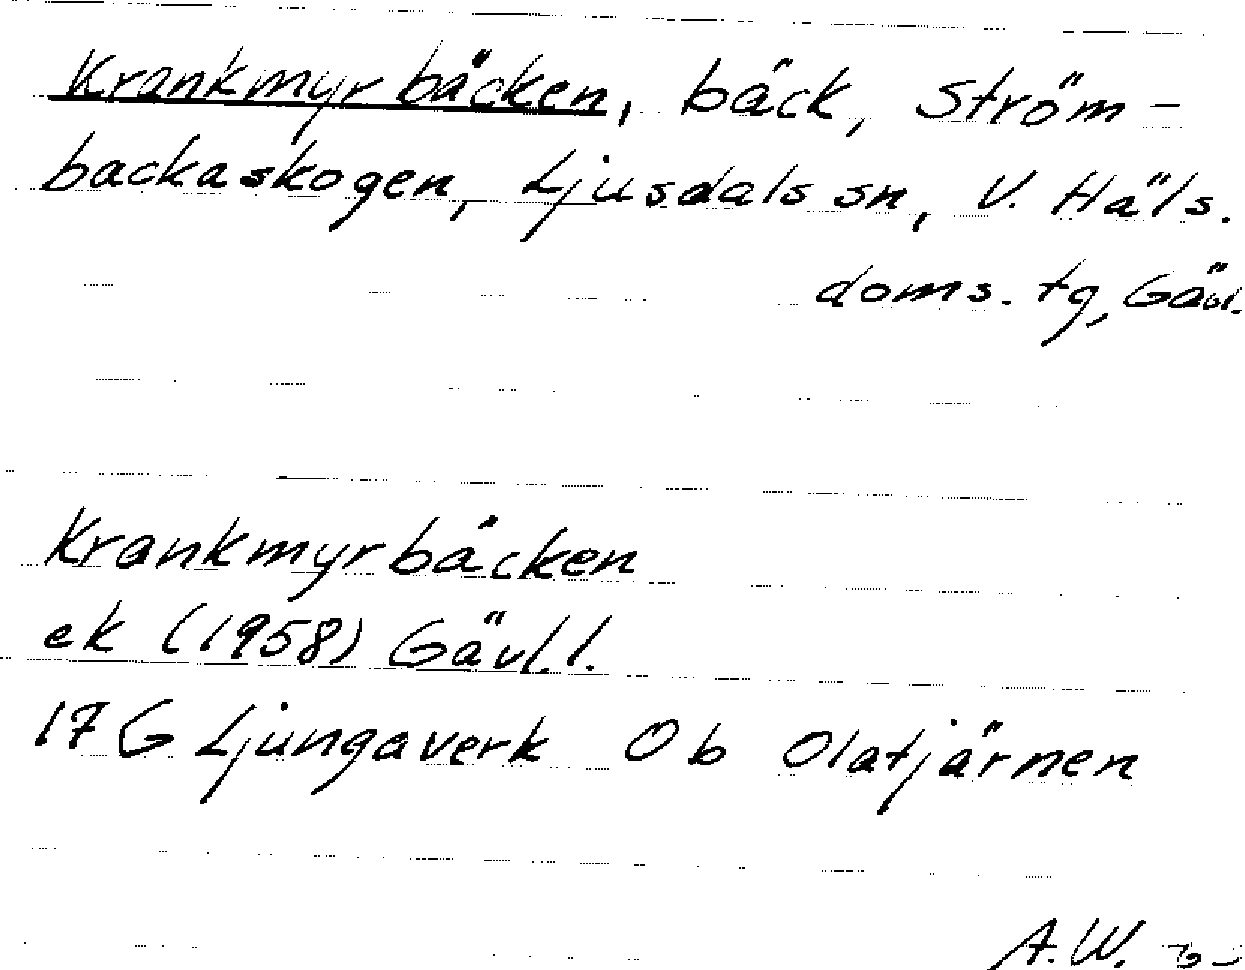 Krankmyrbäcken, bäck, Ström-
backaskogen, Ljusdals sn, V. Häls.
doms. tg, Gävl.
Krankmyrbäcken
ek (1958) Gävl.l.
17G Ljungaverk 0b Olatjärnen
A.W.